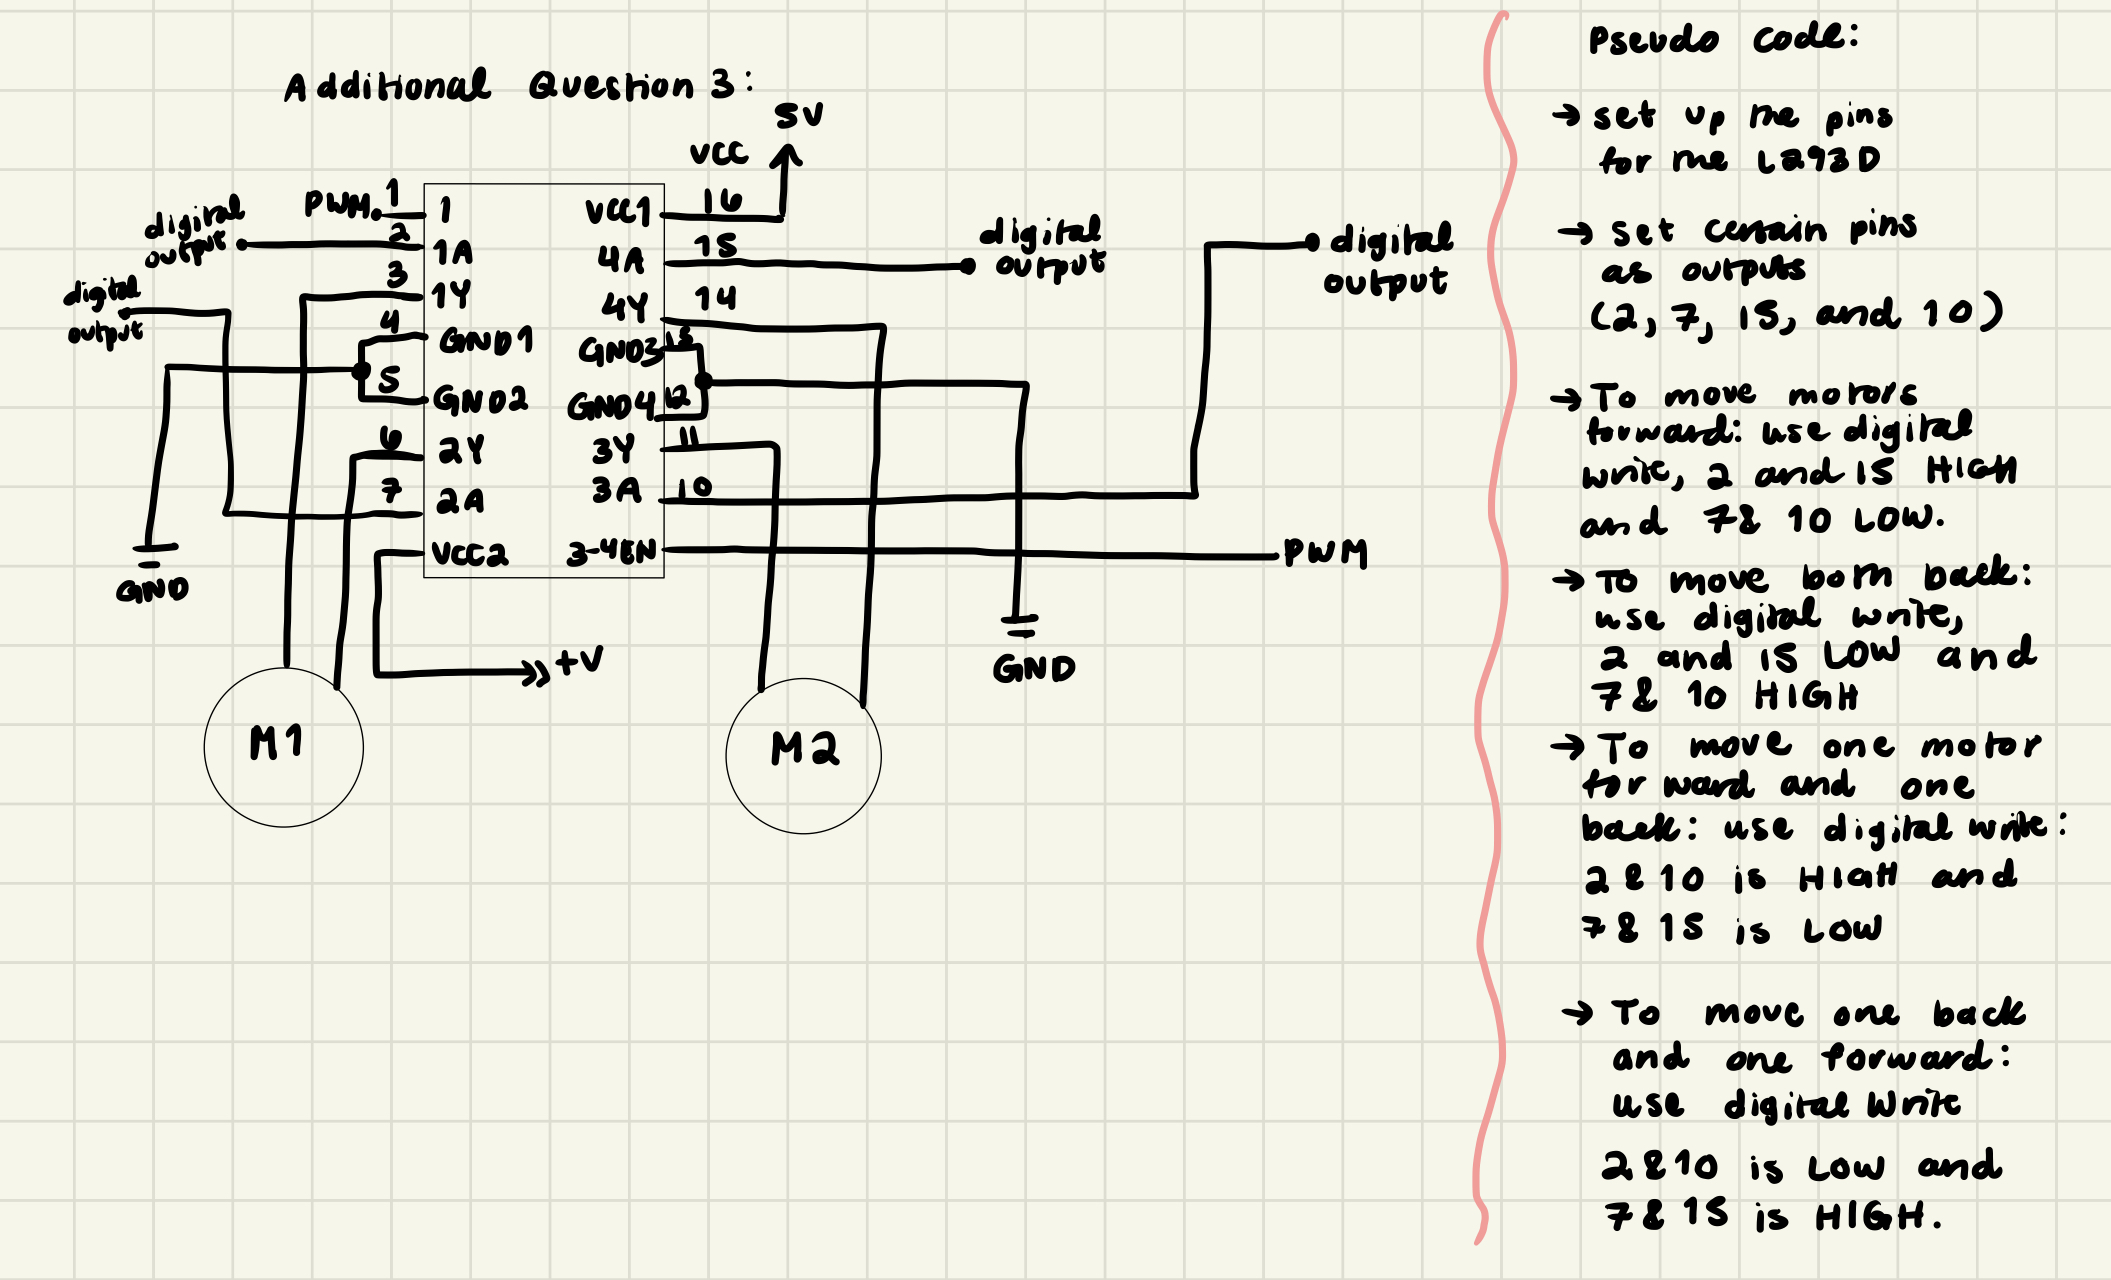 Additional Question 3:
5V
VCC
PWM
1
digital
output
2
3
digital
output
4
5
GND
6
7
1
1A
1Y
GND1
GND2
2Y
2A
VCC2
VCC1
4A
4Y
GND3
GND4
3Y
3A
3-4EN
16
15
14
13
12
11
10
digital
output
digital
output
PWM
GND
+V
M1
M2
Pseudo code:
→ set up the pins
for the L293D
→ set certain pins
as outputs
(2, 7, 15, and 10)
→ To move motors
forward: use digital
write, 2 and 15 HIGH
and 7& 10 LOW.
→ To move both back:
use digital write,
2 and 15 LOW and
7& 10 HIGH
→ To move one motor
forward and one
back: use digital write:
2 & 10 is HIGH and
7 & 15 is LOW
→ To move one back
and one forward:
use digital Write
2 & 10 is LOW and
7 & 15 is HIGH.